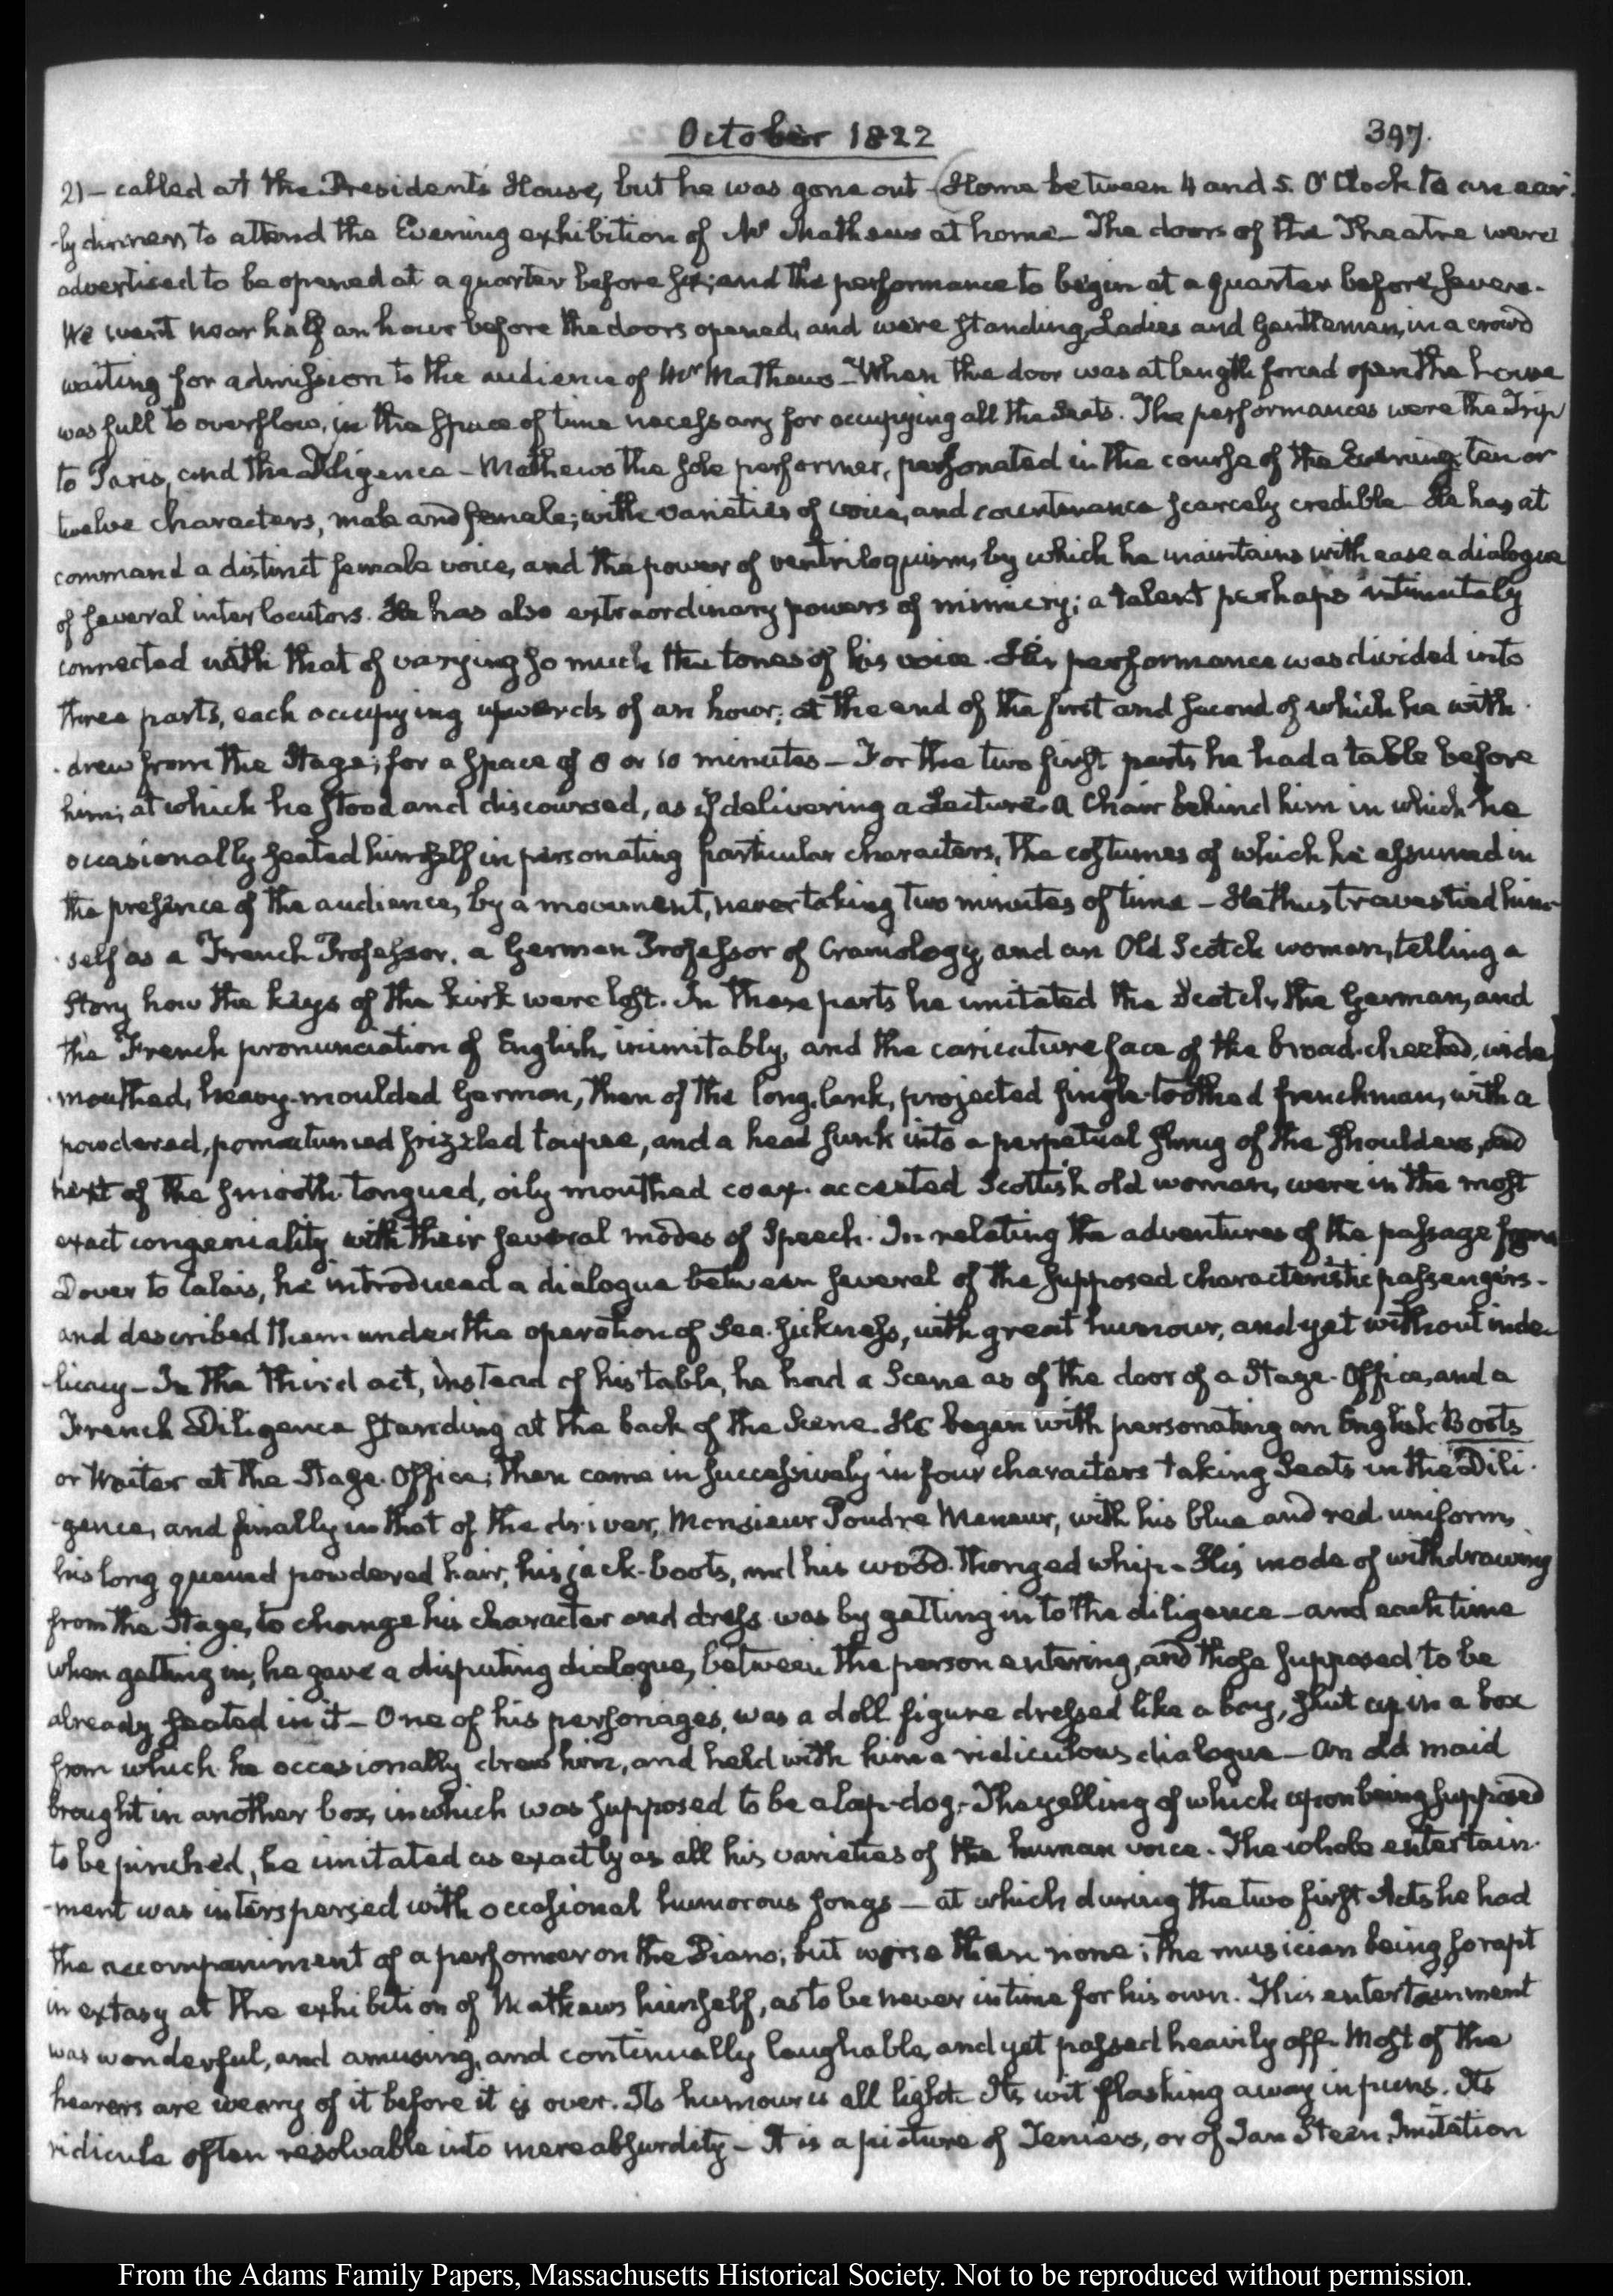 October 1822
397.
21 — called at the President's House, but he was gone out — (Home between 4 and 5. O'Clock to an ear-
-ly dinner, to attend the Evening exhibition of Mr Mathews at home — The doors of the Theatre were
advertised to be opened at a quarter before six; and the performance to begin at a quarter before seven.
We went near half an hour before the doors opened, and were standing, Ladies and Gentlemen, in a crowd
waiting for admission to the audience of Mr Mathews — When the door was at length forced open the house
was full to overflow, in the space of time necessary for occupying all the seats. The performances were the Trip
to Paris, and the Diligence — Mathews the sole performer, personated in the course of the Evening ten or
twelve characters, male and female; with varieties of voice, and countenance scarcely credible — He has at
command a distinct female voice, and the power of ventriloquism, by which he maintains with ease a dialogue
of several interlocutors. He has also extraordinary powers of mimicry; a talent perhaps intimately
connected with that of varying so much the tones of his voice. His performance was divided into
three parts, each occupying upwards of an hour; at the end of the first and second of which he with-
-drew from the Stage, for a space of 8 or 10 minutes — For the two first parts he had a table before
him; at which he stood and discoursed, as if delivering a Lecture. A Chair behind him in which he
occasionally seated himself in personating particular characters, the costumes of which he assumed in
the presence of the audience, by a movement, never taking two minutes of time — He thus travestied him-
-self as a French Professor, a German Professor of Craniology, and an Old Scotch woman, telling a
story how the keys of the kirk were lost. In these parts he imitated the Scotch, the German, and
the French pronunciation of English, inimitably, and the caricature face of the broad-cheeked, wide
-mouthed, heavy-moulded German, then of the long, lank, projected single-toothed frenchman, with a
powdered, pomatumed frizzled toupee, and a head sunk into a perpetual shrug of the shoulders, and
next of the smooth-tongued, oily mouthed coax-accented Scottish old woman, were in the most
exact congeniality with their several modes of Speech. In relating the adventures of the passage from
Dover to Calais, he introduced a dialogue between several of the supposed characteristic passengers —
and described them under the operation of Sea-sickness, with great humour, and yet without inde-
-licacy — In the third act, instead of his table, he had a Scene as of the door of a Stage-Office, and a
French Diligence standing at the back of the Scene. He began with personating an English Boots
or Waiter at the Stage-Office; then came in successively in four characters taking Seats in the Dili-
-gence, and finally in that of the driver, Monsieur Poudre Meneur, with his blue and red uniform,
his long queued powdered hair, his jack-boots, and his wood-thonged whip — His mode of withdrawing
from the Stage, to change his character and dress was by getting in to the diligence — and each time
when getting in, he gave a disputing dialogue, between the person entering, and those supposed to be
already seated in it — One of his personages, was a doll figure dressed like a boy, shut up in a box
from which he occasionally drew him, and held with him a ridiculous dialogue — An old maid
brought in another box, in which was supposed to be a lap-dog — The yelling of which upon being supposed
to be pinched, he imitated as exactly as all his varieties of the human voice. The whole entertain-
-ment was interspersed with occasional humorous songs — at which during the two first Acts he had
the accompaniment of a performer on the Piano; but worse than none; the musician being so rapt
in extasy at the exhibition of Mathews himself, as to be never in time for his own. This entertainment
was wonderful, and amusing, and continually laughable, and yet passed heavily off — Most of the
hearers are weary of it before it is over. Its humour is all light. Its wit flashing away in puns. Its
ridicule often resolvable into mere absurdity — It is a picture of Teniers, or of Jan Steen, Imitation
From the Adams Family Papers, Massachusetts Historical Society. Not to be reproduced without permission.